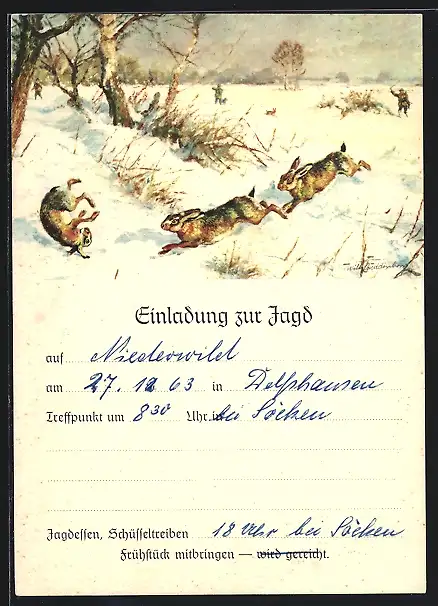 Einladung zur Jagd
auf Niederwild
am 27. 12 63 in Delfshausen
Treffpunkt um 8 30 Uhr. bei Söcken
Jagdessen, Schüsseltreiben 18 Uhr bei Söcken
Frühstück mitbringen — wird gereicht.